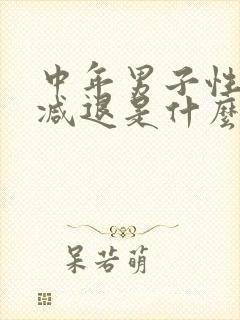 中年男子性
减退是什麼
呆若萌